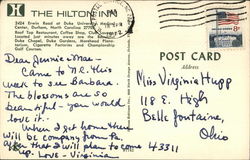 THE HILTON INN
2424 Erwin Road at Duke University Medical
Center, Durham, North Carolina 27705
Roof Top Restaurant, Coffee Shop, Club
located just minutes away are the
Duke Chapel, Duke Gardens, Morehead Plane-
tarium, Cigarette Factories and Championship
Golf Courses.
POST CARD
Address
Dear Jennie Mae -
Came to N.C. this
week to see Barbara
The blossoms are so
beautiful - you would
love it.
When I get home there
will be company from Pa.
after that I will plan to come
up. Love - Virginia
Miss Virginia Hupp
118 E. High
Belle Fontaine,
Ohio
43311